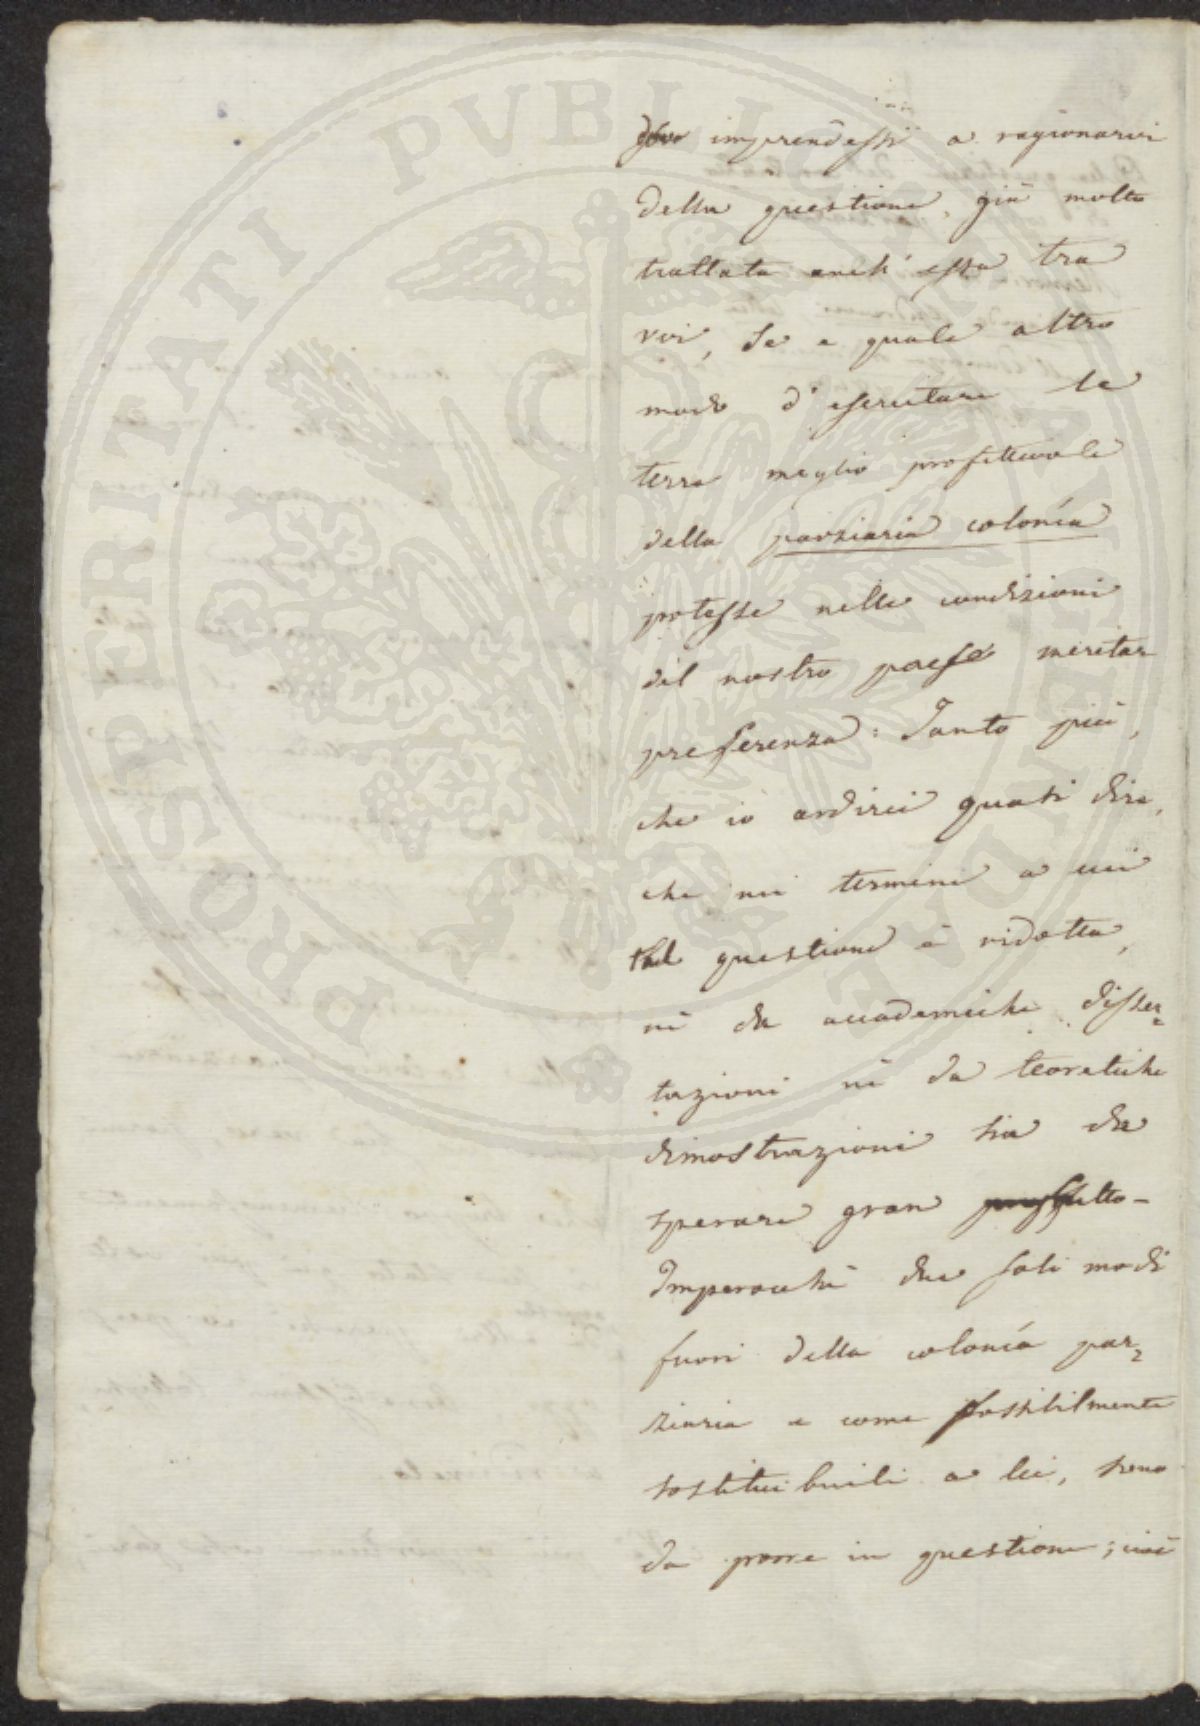 PROSPERITATI PVBLICAE AVGENDAE
imprendessi a ragionarvi
della questione, già molto
trattata anch'essa tra
voi, se e quale altro
modo d'esercitare la
terra meglio profittevole
della parziaria colonía
potesse nelle condizioni
del nostro paese meritar
preferenza: Tanto più,
che io ardirei quasi dire,
che nei termini a cui
tal questione è ridotta,
nè da accademiche disser=
tazioni nè da teoretiche
dimostrazioni sia da
sperare gran profitto-
Imperocchè due soli modi
fuori della colonía par=
ziaria e come possibilmente
sostituibili a lei, sono
da porre in questione; cioè